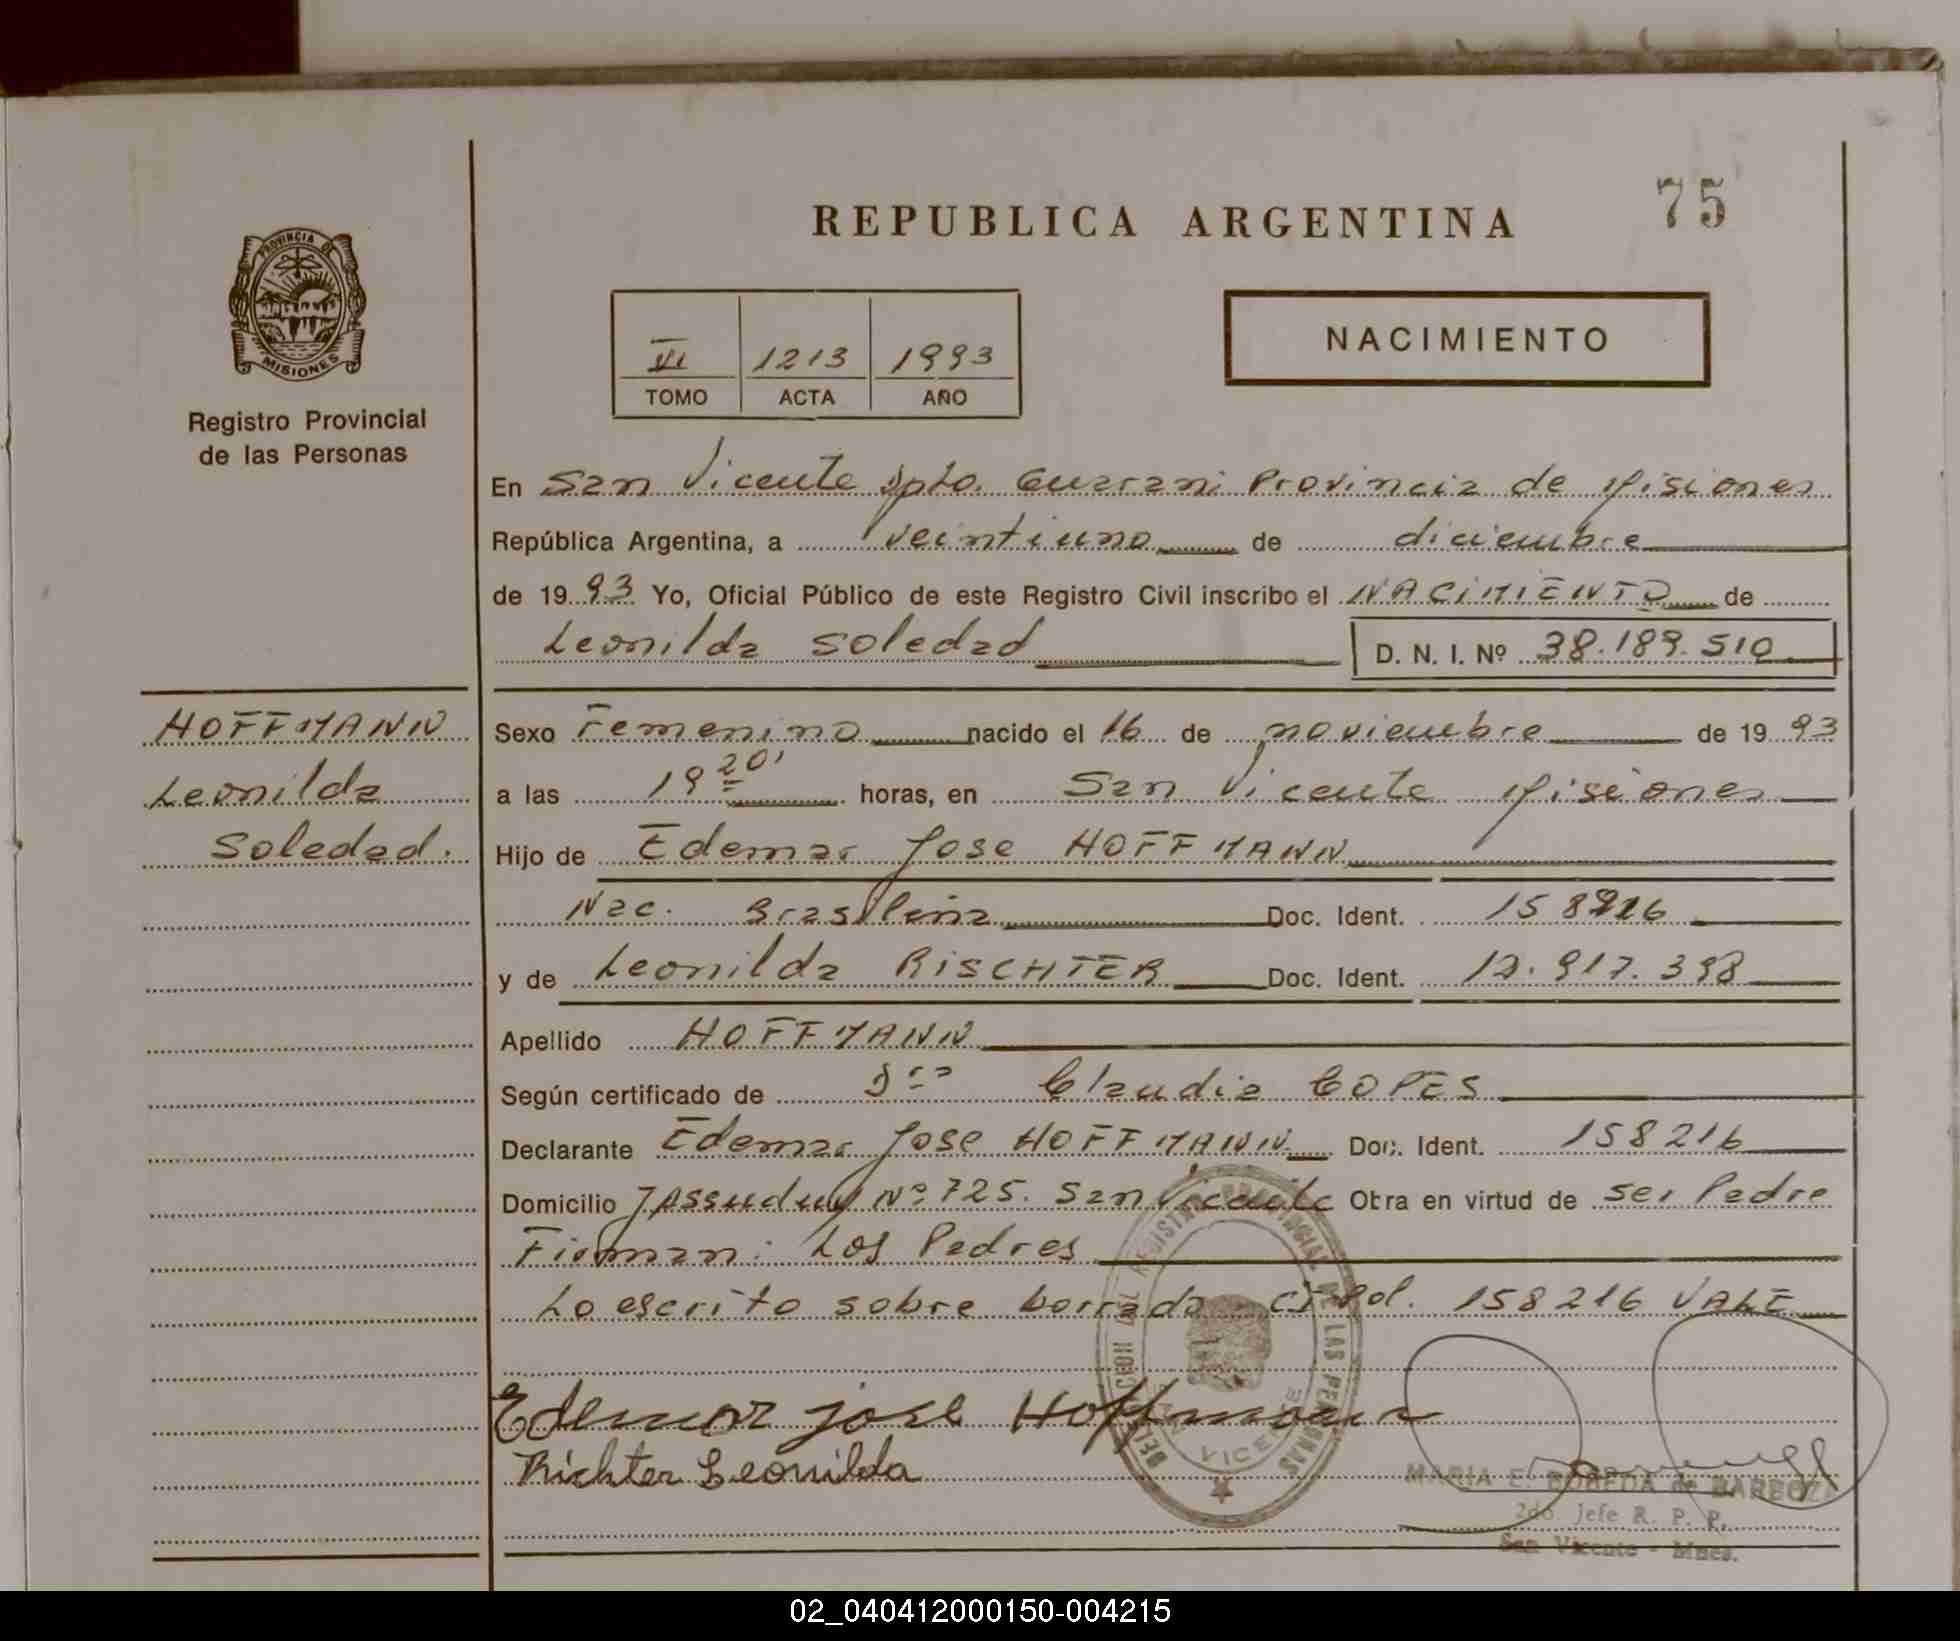 75
REPUBLICA ARGENTINA
PROVINCIA DE
MISIONES
Registro Provincial
de las Personas
NACIMIENTO
VI 1213 1993
TOMO ACTA AÑO
En San Vicente Dpto. Guarani Provincia de Misiones
República Argentina, a veintiuno de diciembre
de 19 93 Yo, Oficial Público de este Registro Civil inscribo el NACIMIENTO de
Leonilda Soledad D. N. I. Nº 38.189.510
HOFFMANN
Leonilda
Soledad.
Sexo Femenino nacido el 16 de noviembre de 19 93
a las 19 20' horas, en San Vicente Misiones
Hijo de Edemar Jose HOFFMANN
Nac. Brasileña Doc. Ident. 158216
y de Leonilda RISCHTER Doc. Ident. 12.917.398
Apellido HOFFMANN
Según certificado de Dra Claudia COPES
Declarante Edemar Jose HOFFMANN Doc. Ident. 158216
Domicilio Nº 725. San Vicente Obra en virtud de ser Padre
Firman: Los Padres
Lo escrito sobre borrado CI Pol. 158216 VALE
Edemar jose Hoffmann
Richter Leonilda
DELEGACION DEL REGISTRO PROVINCIAL DE LAS PERSONAS
VICENTE
MARIA E. BOBEDA de BARBOZA
2do Jefe R. P. P.
San Vicente - Mnes.
02_040412000150-004215